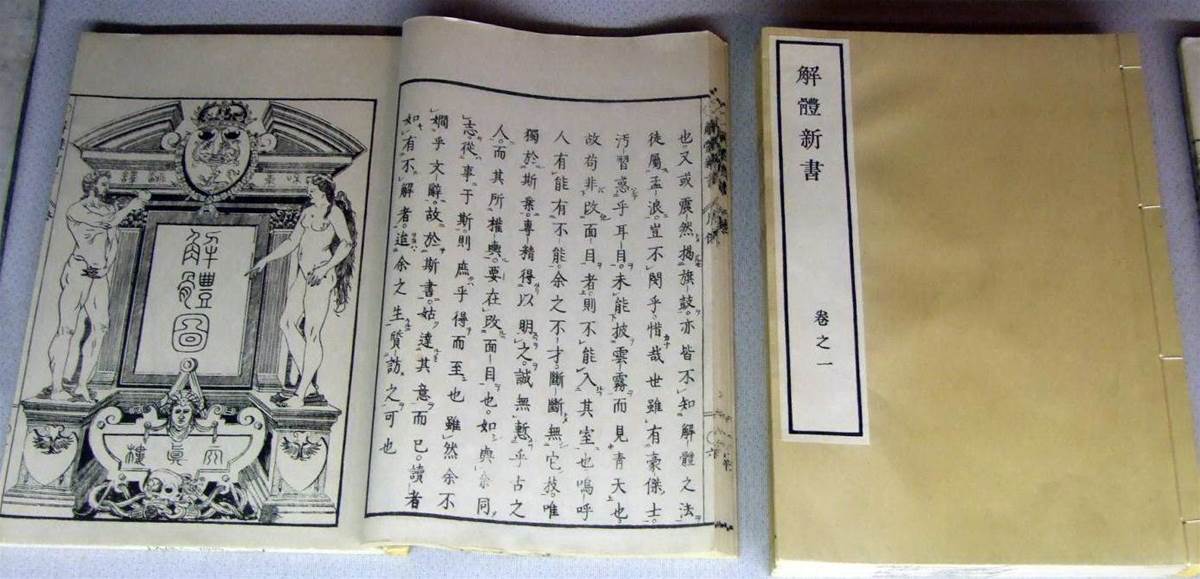 解體新書
卷之一
也。又或震然揭旗鼓。亦皆不知解體之法
徒屬孟浪。豈不閔乎惜哉世雖有豪傑士。
汚習惑乎耳目。未能披雲霧而見青天也。
故苟非改面目者。則不能入其室也嗚呼
人有能有不能。余之不才。斷斷無它技。唯
獨於斯業。專精得以明之。誠無慙乎古之
人。而其所權輿。要在改面目也。如與余同
志。從事于斯則庶乎得而至也雖然余不
嫺乎文辭。故於斯書。姑達其意而已。讀者
如有不解者。余之生質訪之可也
解體圖
天真樓